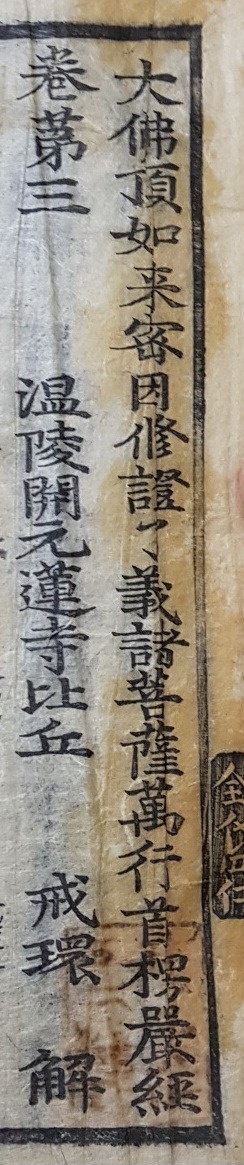 大佛頂如来宻因修證了義諸菩薩萬行首楞嚴經
卷苐三 温陵開元蓮寺比丘 戒環 解